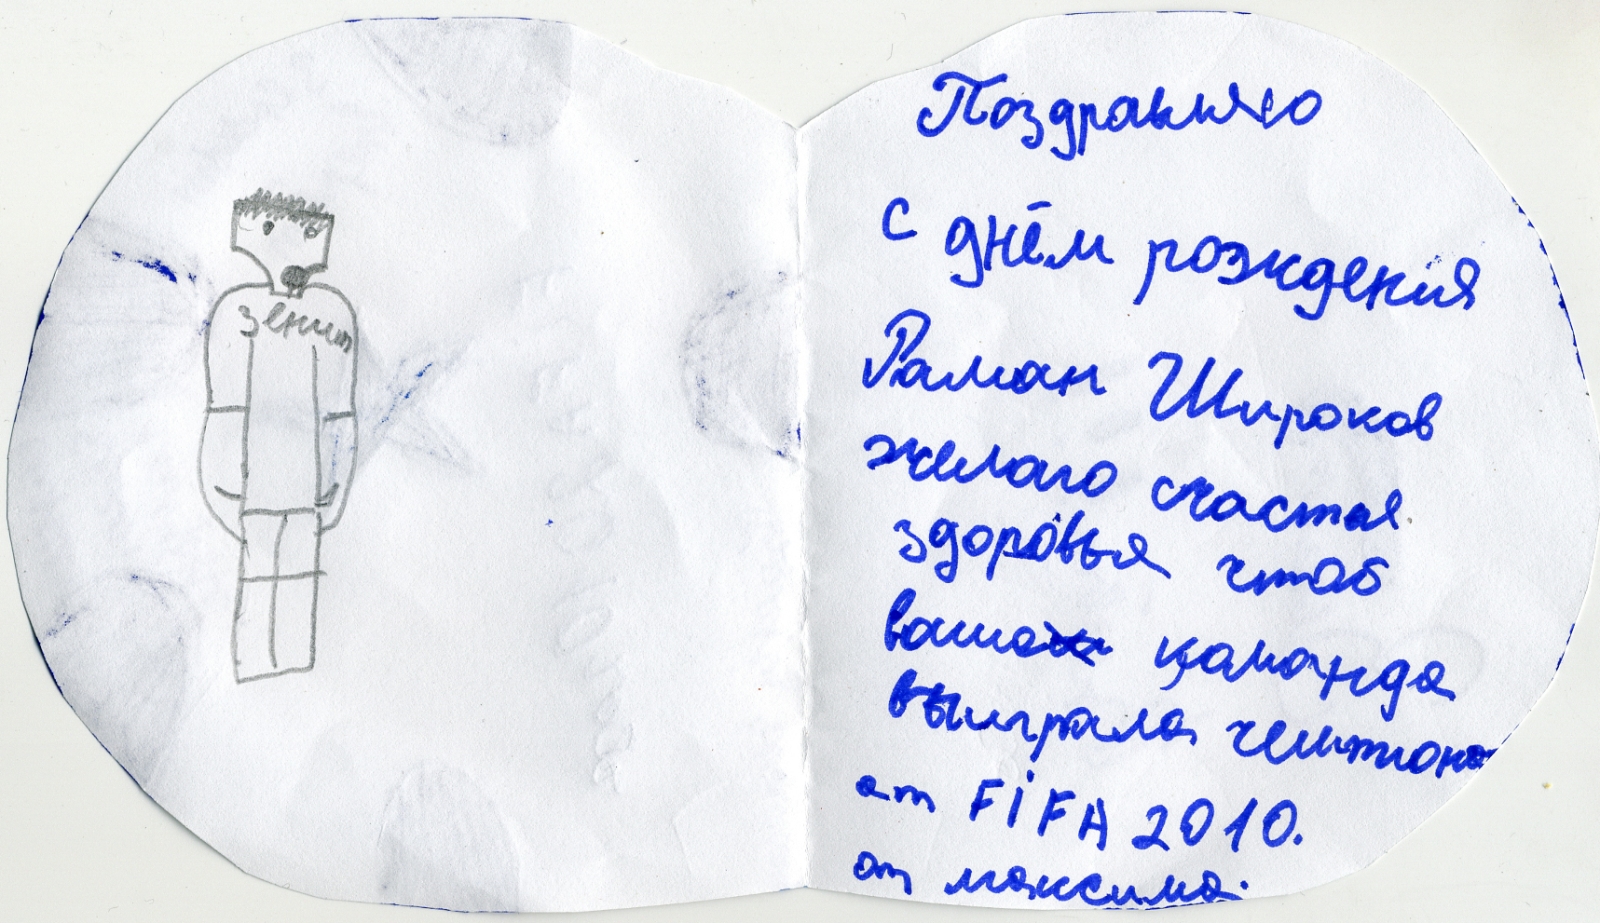 зенит
Поздравляю
с днём рождения
Раман Широков
желаю счастья
здоровья чтоб
ваша команда
выиграла чемпиона
ат FiFA 2010.
от максима.